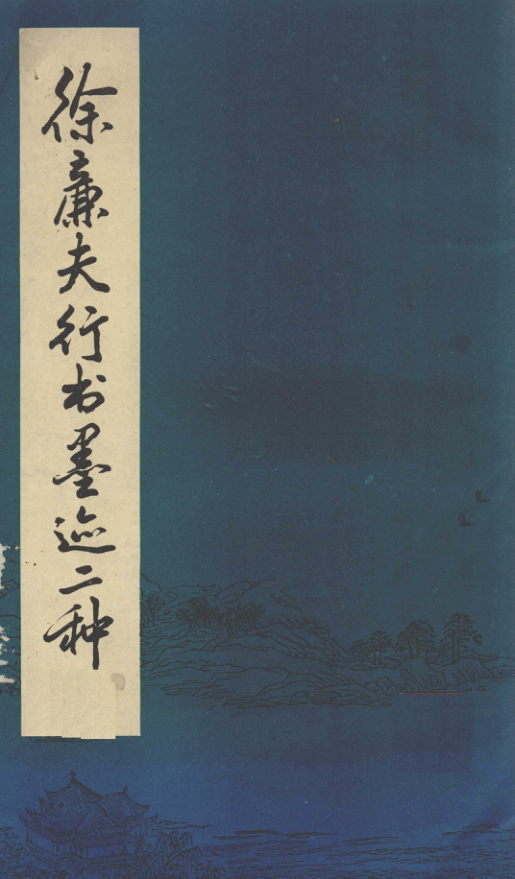 徐廉夫行书墨迹二种